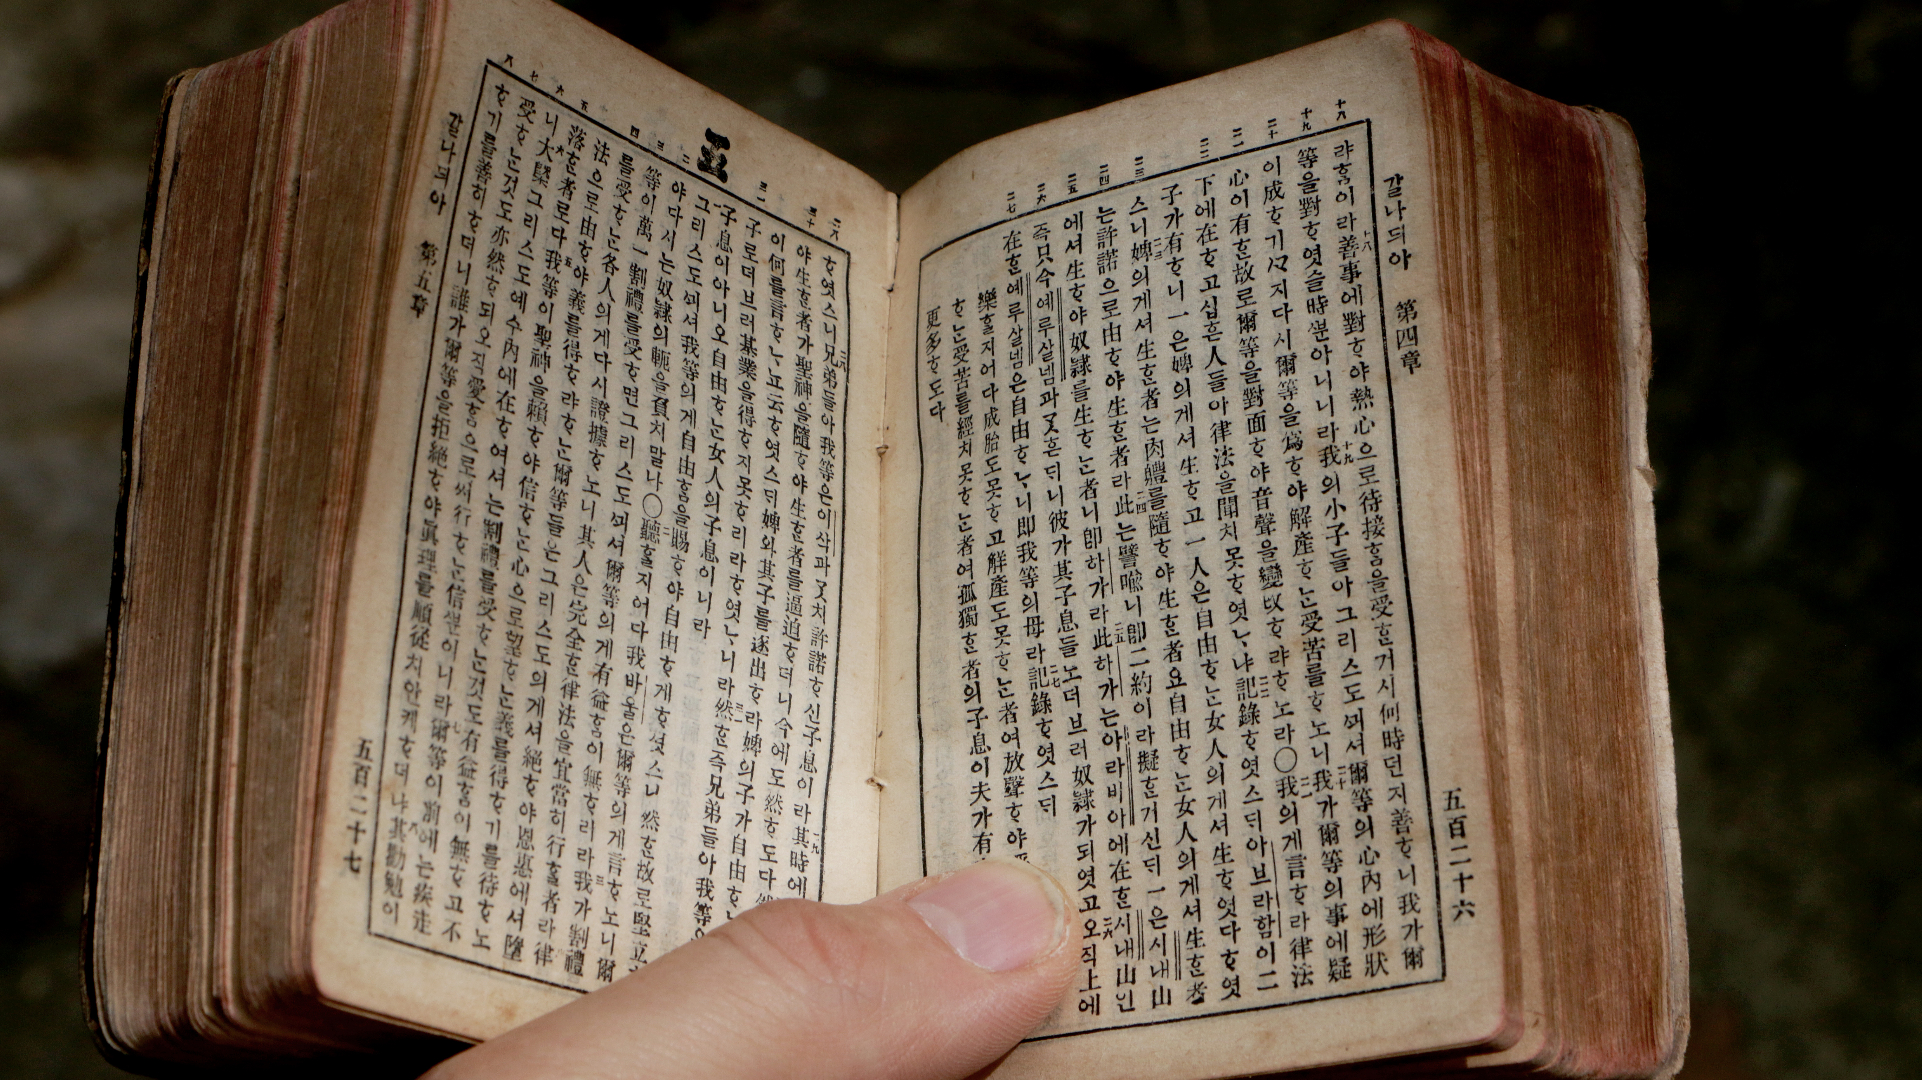 갈나듸아 第四章 五百二十六
十八 十九 二十 二一 二二 二三 二四 二五 二六 二七
랴ᄒᆞᆷ이라善事에對ᄒᆞ야熱心으로待接ᄒᆞᆷ을受ᄒᆞᆫ거시何時던지善ᄒᆞ니我가爾
等을對ᄒᆞ엿슬時ᄲᅮᆫ아니니라我의小子들아그리스도ᄭᅴ셔爾等의心內에形狀
이成ᄒᆞ기ᄭᆞ지다시爾等을爲ᄒᆞ야解產ᄒᆞᄂᆞᆫ受苦를ᄒᆞ노니我가爾等의事에疑
心이有ᄒᆞᆫ故로爾等을對面ᄒᆞ야音聲을變改ᄒᆞ랴ᄒᆞ노라〇我의게言ᄒᆞ라律法
下에在ᄒᆞ고십흔人들아律法을聞치못ᄒᆞ엿ᄂᆞ냐記錄ᄒᆞ엿스ᄃᆡ아브라함이二
子가有ᄒᆞ니一은婢의게셔生ᄒᆞ고一人은自由ᄒᆞᄂᆞᆫ女人의게셔生ᄒᆞ엿다ᄒᆞ엿
스니婢의게셔生ᄒᆞᆫ者는肉體를隨ᄒᆞ야生ᄒᆞᆫ者요自由ᄒᆞᄂᆞᆫ女人의게셔生ᄒᆞᆫ者
는許諾으로由ᄒᆞ야生ᄒᆞᆫ者라此는譬喩니卽二約이라擬ᄒᆞᆫ거신ᄃᆡ一은시내山
에셔生ᄒᆞ야奴隸를生ᄒᆞᄂᆞᆫ者니卽하가라此하가는아라비아에在ᄒᆞᆫ시내山인
즉只今예루살넴과ᄀᆞᆺ흔ᄃᆡ니彼가其子息들노더브러奴隸가되엿고오직上에
在ᄒᆞᆫ예루살넴은自由ᄒᆞᄂᆞ니卽我等의母라記錄ᄒᆞ엿스ᄃᆡ
樂ᄒᆞᆯ지어다成胎도못ᄒᆞ고解產도못ᄒᆞᄂᆞᆫ者여放聲ᄒᆞ야
ᄒᆞᄂᆞᆫ受苦를經치못ᄒᆞᄂᆞᆫ者여孤獨ᄒᆞᆫ者의子息이夫가有
更多ᄒᆞ도다
二八 三十 三一 五 二 三 四 五 六 七 八
ᄒᆞ엿스니兄弟들아我等은이삭과ᄀᆞᆺ치許諾ᄒᆞ신子息이라其時에
야生ᄒᆞᆫ者가聖神을隨ᄒᆞ야生ᄒᆞᆫ者를逼迫ᄒᆞ더니今에도然ᄒᆞ도다
이何를言ᄒᆞᄂᆞ뇨云ᄒᆞ엿스ᄃᆡ婢와其子를逐出ᄒᆞ라婢의子가自由ᄒᆞᄂᆞ
子로더브러基業을得ᄒᆞ지못ᄒᆞ리라ᄒᆞ엿ᄂᆞ니라然ᄒᆞᆫ즉兄弟들아我等
子息이아니오自由ᄒᆞᄂᆞᆫ女人의子息이니라
그리스도ᄭᅴ셔我等의게自由ᄒᆞᆷ을賜ᄒᆞ야自由ᄒᆞ게ᄒᆞ셧스니然ᄒᆞᆫ故로堅立
야다시는奴隸의軛을負치말나〇聽ᄒᆞᆯ지어다我바울은爾等의게言ᄒᆞ노니爾
等이萬一割禮를受ᄒᆞ면그리스도ᄭᅴ셔爾等의게有益ᄒᆞᆷ이無ᄒᆞ리라我가割禮
를受ᄒᆞᄂᆞᆫ各人의게다시證據ᄒᆞ노니其人은完全ᄒᆞᆫ律法을宜當히行ᄒᆞᆯ者라律
法으로由ᄒᆞ야義를得ᄒᆞ랴ᄒᆞᄂᆞᆫ爾等들은그리스도의게셔絕ᄒᆞ야恩惠에셔墮
落ᄒᆞᆫ者로다我等이聖神을賴ᄒᆞ야信ᄒᆞᄂᆞᆫ心으로望ᄒᆞᄂᆞᆫ義를得ᄒᆞ기를待ᄒᆞ노
니大槩그리스도예수內에在ᄒᆞ여셔는割禮를受ᄒᆞᄂᆞᆫ것도有益ᄒᆞᆷ이無ᄒᆞ고不
受ᄒᆞᄂᆞᆫ것도亦然ᄒᆞ되오직愛ᄒᆞᆷ으로ᄡᅥ行ᄒᆞᄂᆞᆫ信ᄲᅮᆫ이니라爾等이前에는疾走
ᄒᆞ기를善히ᄒᆞ더니誰가爾等을拒絕ᄒᆞ야眞理를順從치안케ᄒᆞ더냐其勸勉이
갈나듸아 第五章 五百二十七